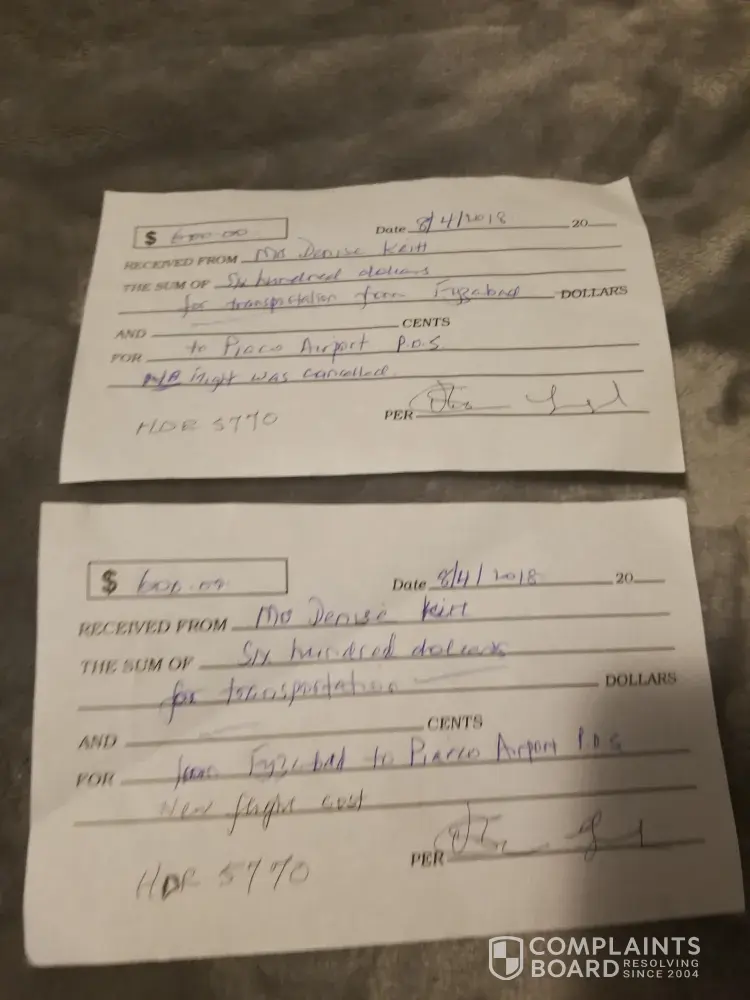 $ 600.00 Date 8/4/2018 20
RECEIVED FROM Mrs Denise Keitt
THE SUM OF Six hundred dollars
for transportation from Fyzabad DOLLARS
AND CENTS
FOR to Piarco Airport P.O.S.
Flight was cancelled.
HDR 5770 PER
$ 600.00 Date 8/4/2018 20
RECEIVED FROM Mrs Denise Keitt
THE SUM OF Six hundred dollars
for transportation DOLLARS
AND CENTS
FOR from Fyzabad to Piarco Airport P.O.S
New flight cost
HDR 5770 PER
COMPLAINTS
BOARD RESOLVING
SINCE 2004